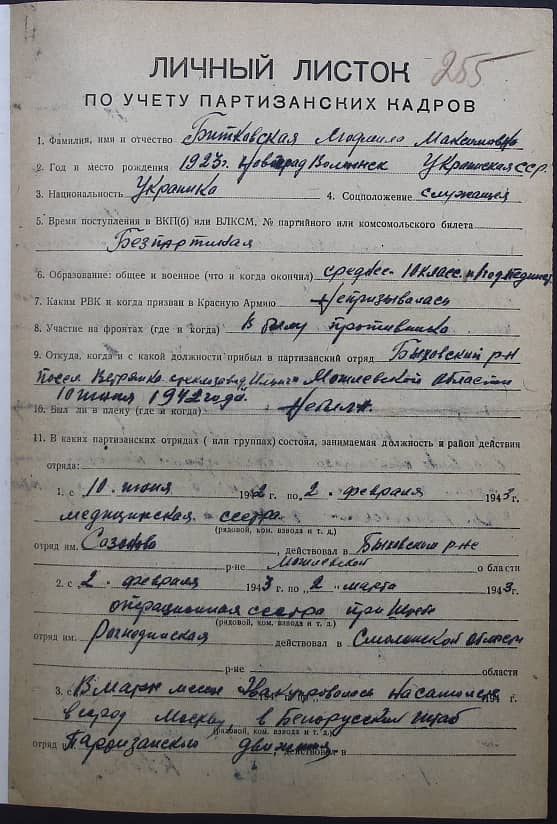 255
ЛИЧНЫЙ ЛИСТОК
ПО УЧЕТУ ПАРТИЗАНСКИХ КАДРОВ
1. Фамилия, имя и отчество Битковская Людмила Максимовна
2. Год и место рождения 1923г. Новоград Волынск Украинская ССР.
3. Национальность Украинка 4. Соцположение служащая
5. Время поступления в ВКП(б) или ВЛКСМ, № партийного или комсомольского билета
Безпартийная
6. Образование: общее и военное (что и когда окончил) среднее. 10 класс.
7. Каким РВК и когда призван в Красную Армию Непризывалась
8. Участие на фронтах (где и когда) В тылу противника
9. Откуда, когда и с какой должности прибыл в партизанский отряд Быховский р-н
посел. Ветрянка стеклозавод Могилевской области
10 июня 1942 года.
10. Был ли в плену (где и когда) Небыла.
11. В каких партизанских отрядах (или группах) состоял, занимаемая должность и район действия
отряда:
1. с 10. июня 1942 г. по 2. февраля 1943 г.
медицинская сестра
(рядовой, ком. взвода и т. д.)
отряд им. , действовал в Быховским р-не
р-не Могилевской области
2. с „2. февраля 1943 г. по „2 " марта 1943 г.
операционная сестра при штабе
(рядовой, ком. взвода и т. д.)
отряд им. действовал в Смоленской области
р-не области
3. с В Марте месяце Эвакуировалась на самолете
в город Москву, в Белорусский штаб
(рядовой, ком. взвода и т. д.)
отряд Партизанского движения, действовал в